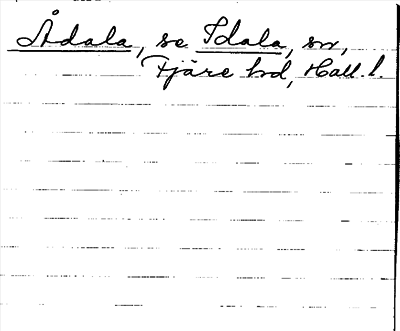 Ådala, se Idala, sn,
Fjäre hd, Hall. l.